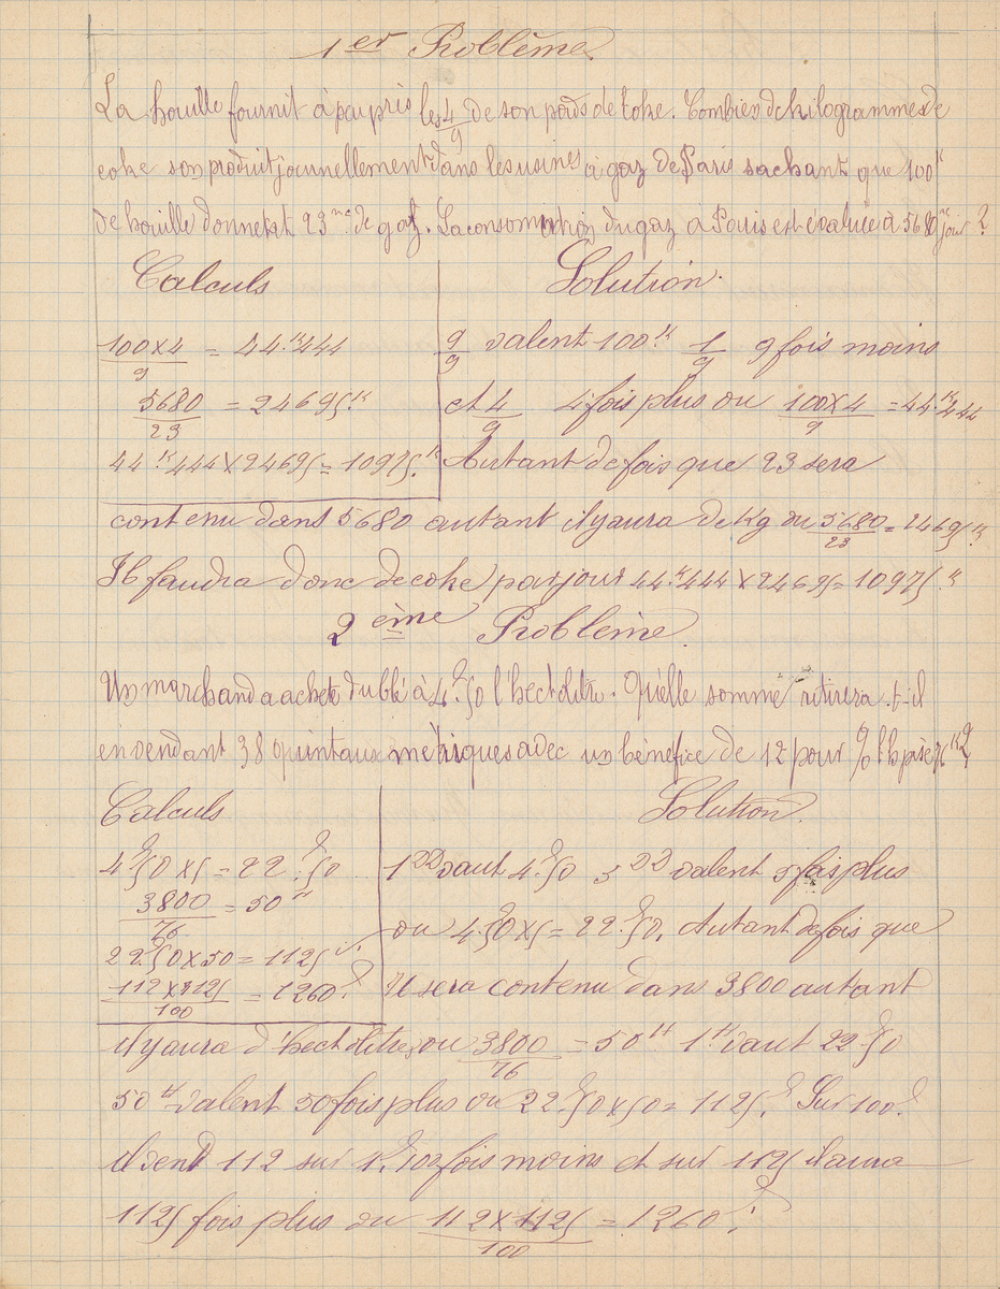 1er Problème
La houille fournit à peu près les 4/9 de son poids de coke. Combien de kilogrammes de
coke son produit journellement dans les usines à gaz de Paris sachant que 100 K
de houille donnent 23 mc de gaz. La consommation du gaz a Paris est évaluée à 5680 mc jour ?
Calculs
Solution.
100x4/9 = 44.K444
5680/23 = 24695.K
44.K444 X 24695 = 10975.K
9/9 valent 100.K 1/9 9 fois moins
et 4/9 4 fois plus ou 100X4/9 = 44.K444
Autant de fois que 23 sera
contenu dans 5680 autant il y aura de Kg ou 5680/23 = 24695 K.
Il faudra donc de coke par jour 44.K444 X 24695 = 10975.K
2ème Problème
Un marchand a acheté du blé à 4.f50 l'hectolitre. Quelle somme retirera-t-il
en vendant 38 quintaux métriques avec un bénéfice de 12 pour % l'h pèse 76 K ?
Calculs
Solution.
4f50 x 5 = 22.f50
3800/76 = 50 H
22.f50 x 50 = 1125 f.
112 x 1125/100 = 1260.f
1 DD vaut 4.f50 5 DD valent 5 fois plus
ou 4.f50 x 5 = 22.f50. Autant de fois que
76 sera contenu dans 3800 autant
il y aura d'hectolitres ou 3800/76 = 50 H 1.H vaut 22 f50
50 H valent 50 fois plus ou 22.f50 x 50 = 1125.f Sur 100.f
il vend 112 sur 1.f 100 fois moins et sur 1125 il aura
1125 fois plus ou 112 X 1125/100 = 1260 f.